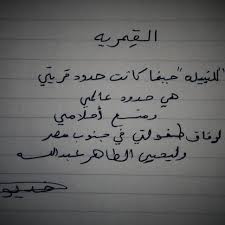 القمريه
"للنبيله" حينما كانت حدود قريتي
هي حدود عالمي
ومنبع أحلامي
لرفاق طفولتي في جنوب مصر
وليحيى الطاهر عبدالله